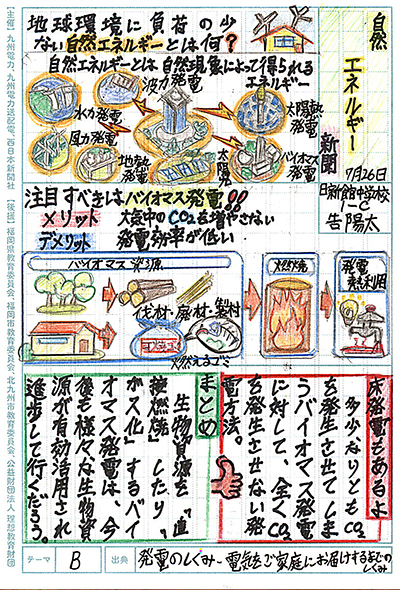 自然
エネルギー
新聞
7月26日
日新館中学校
告 陽太
地球環境に負荷の少
ない自然エネルギーとは何?
自然エネルギーとは、自然現象によって得られる
エネルギー
水力発電
波力発電
太陽熱
発電
風力発電
地熱
発電
太陽光
バイオマス
発電
注目すべきはバイオマス発電!!
メリット 大気中のCO2を増やさない
デメリット 発電効率が低い
バイオマス資源
伐材・廃材・製材
燃えるゴミ
燃焼
発電
熱利用
未発電であるよ
多少なりともCO2
を発生させてしま
うバイオマス発電
に対して、全くCO2
を発生させない発
電方法。
まとめ
生物資源を「直
接燃焼」したり、
「ガス化」するバイ
オマス発電は、今
後も様々な生物資
源が有効活用され
進歩して行くだろう。
テーマ B 出典 発電のしくみ-電気をご家庭にお届けするまでの
しくみ
【主催】九州電力、九州電力送配電、西日本新聞社 【後援】福岡県教育委員会、福岡市教育委員会、北九州市教育委員会、公益財団法人 理想教育財団